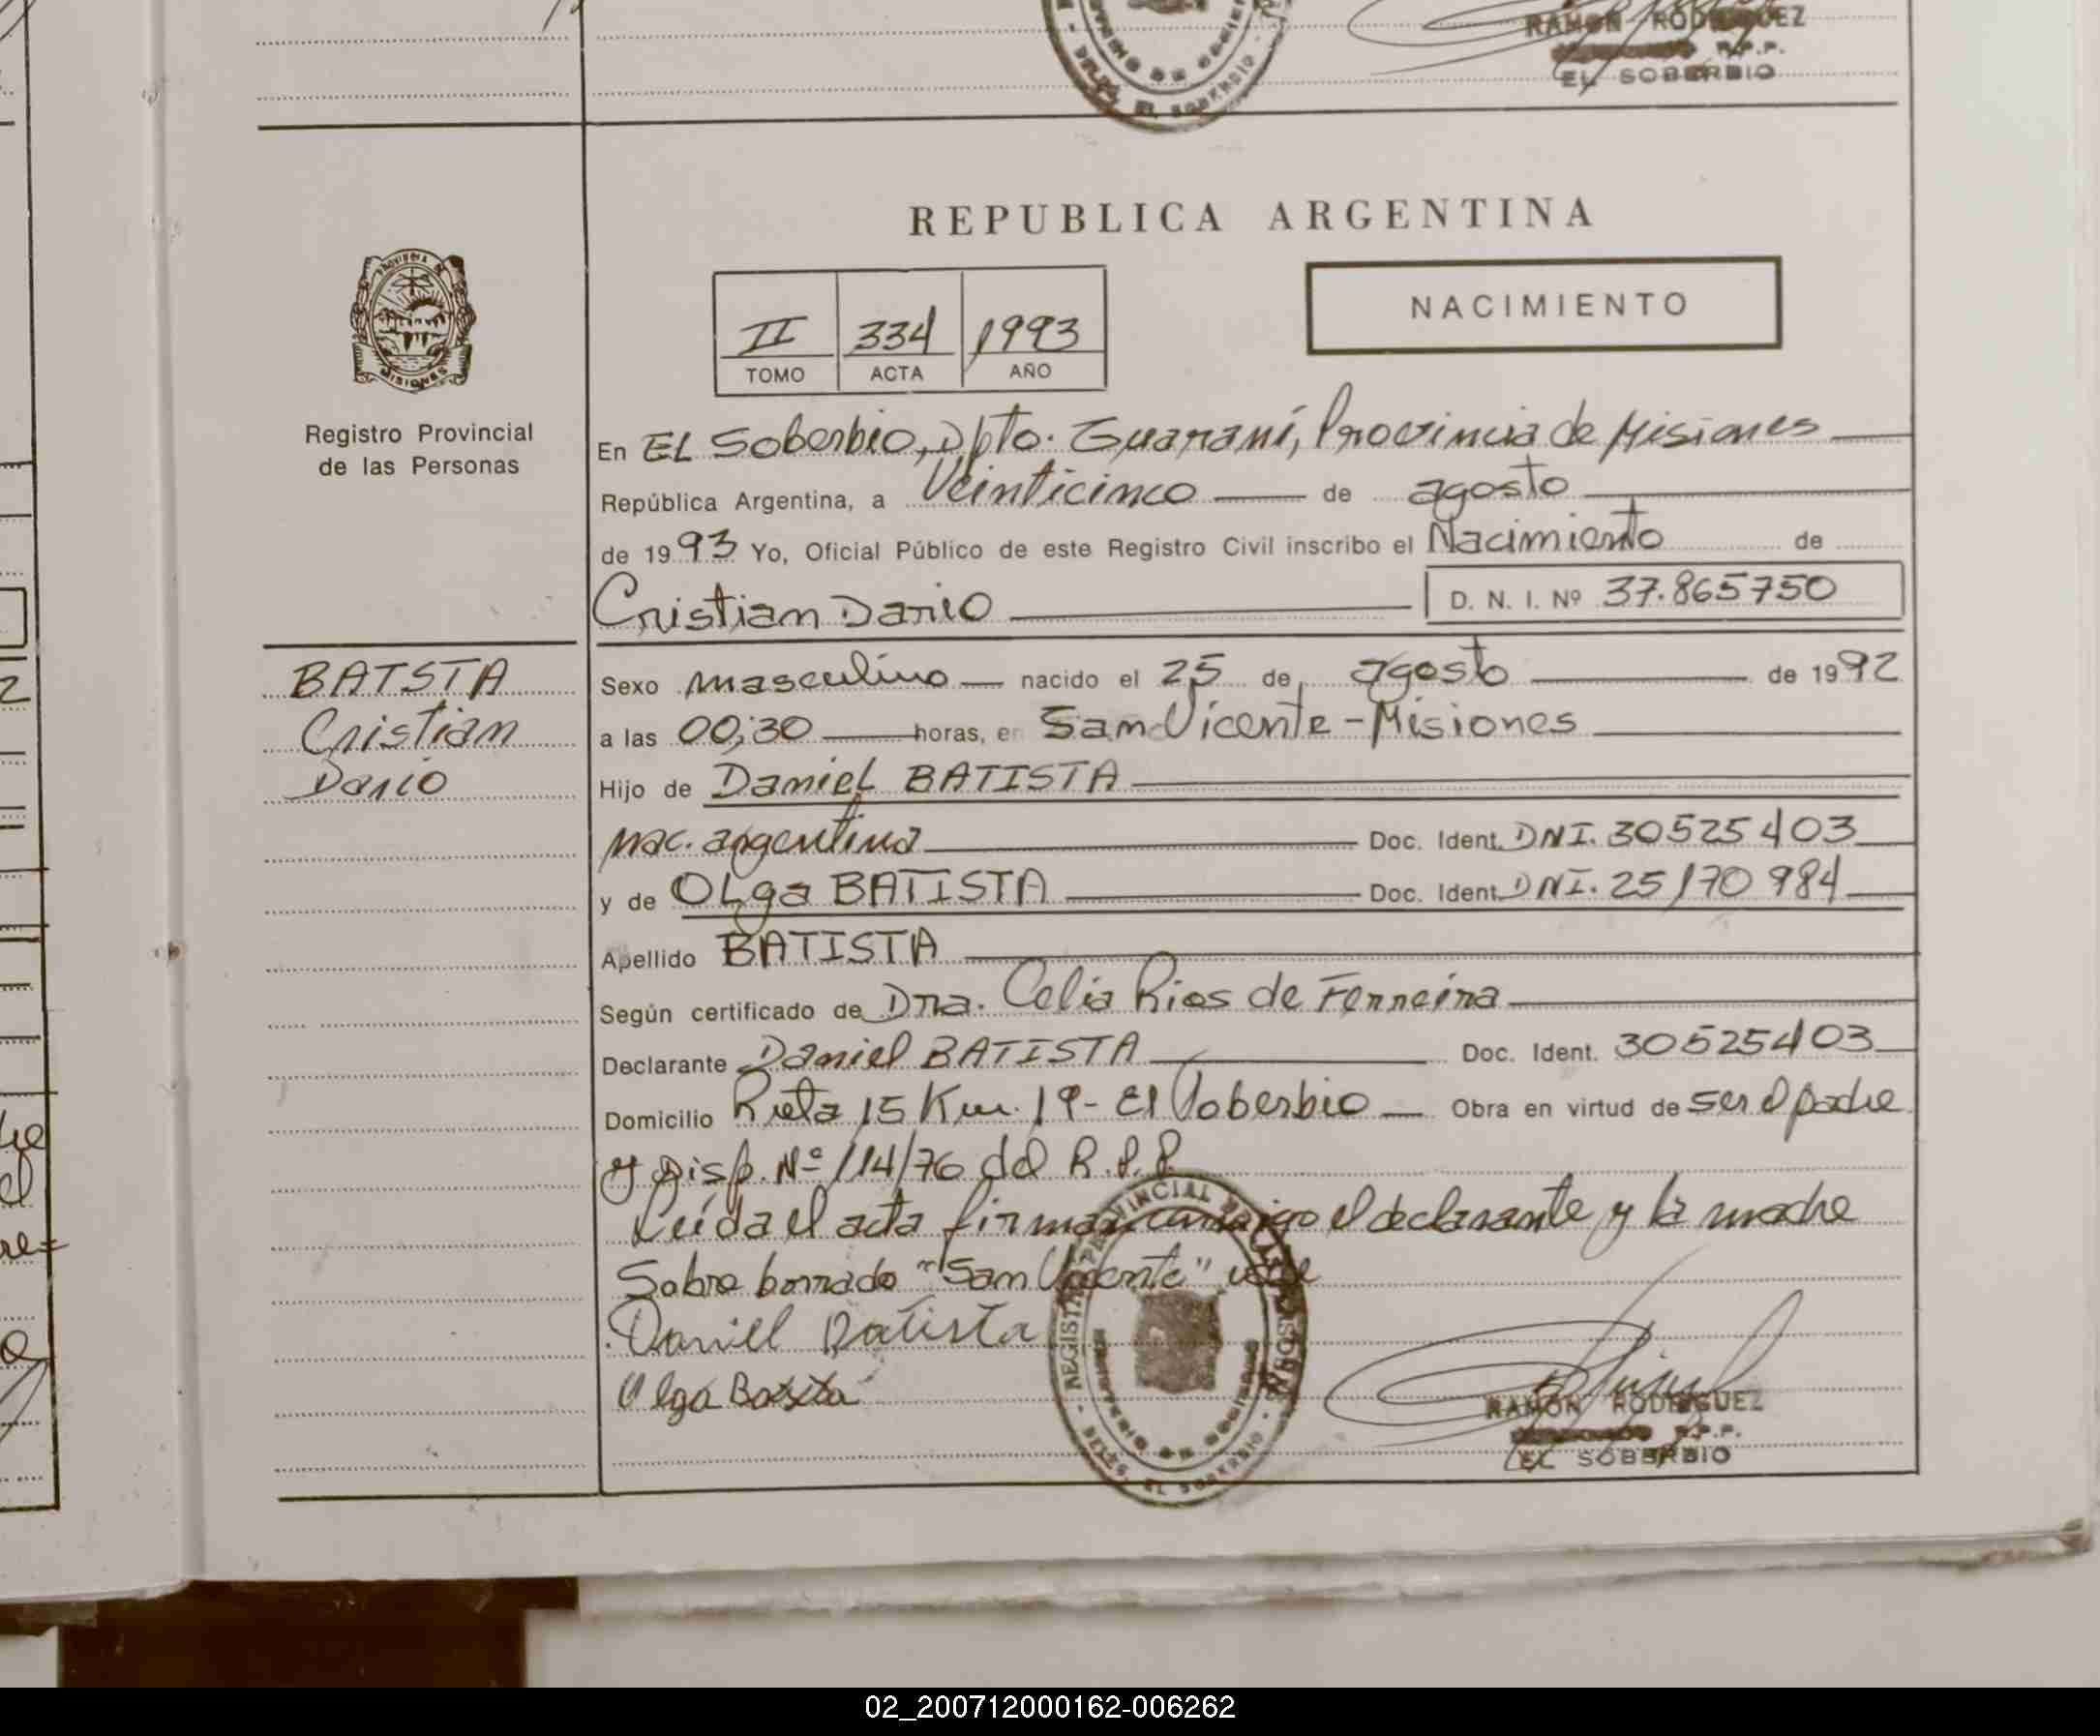 RAMON RODRIGUEZ
R.P.P.
EL SOBERBIO
REPUBLICA ARGENTINA
NACIMIENTO
II 334 1993
TOMO ACTA AÑO
Registro Provincial
de las Personas
En EL Soberbio, Dpto. Guaraní, Provincia de Misiones
República Argentina, a Veinticinco de agosto
de 1993 Yo, Oficial Público de este Registro Civil inscribo el Nacimiento de
Cristian Dario D. N. I. Nº 37.865750
BATSTA
Cristian
Dario
Sexo masculino nacido el 25 de agosto de 1992
a las 00;30 horas, en San Vicente - Misiones
Hijo de Daniel BATISTA
nac. argentina Doc. Ident. DNI. 30525403
y de OLga BATISTA Doc. Ident. DNI. 25170984
Apellido BATISTA
Según certificado de Dra. Celia Rios de Ferreira
Declarante Daniel BATISTA Doc. Ident. 30525403
Domicilio Ruta 15 Km. 19 - El Soberbio Obra en virtud de ser el padre
y Disp. Nº 114/76 del R.P.P.
Leída el acta firman conmigo el declarante y la madre
Sobre borrado "San Vicente" vale
Daniel Batista
Olga Batista
REGISTRO PROVINCIAL DE LAS PERSONAS
EL SOBERBIO
RAMON RODRIGUEZ
R.P.P.
EL SOBERBIO
02_200712000162-006262